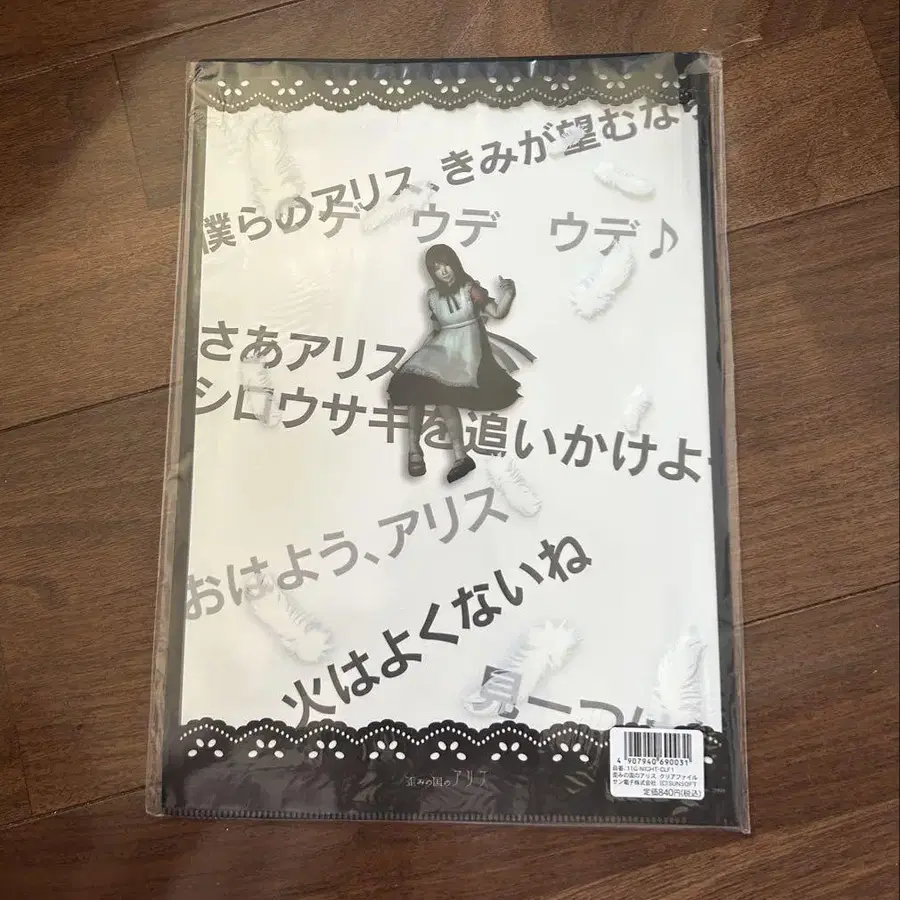 僕らのアリス、きみが望むなら
ウデ ウデ ウデ♪
さあアリス
シロウサギを追いかけよう
おはよう、アリス
火はよくないね
見ーつけ
歪みの国のアリス
4 907940 690031
品番:110-NIGHT-CLF1
歪みの国のアリス クリアファイル
サン電子株式会社 (C)SUNSOFT
定価840円(税込)